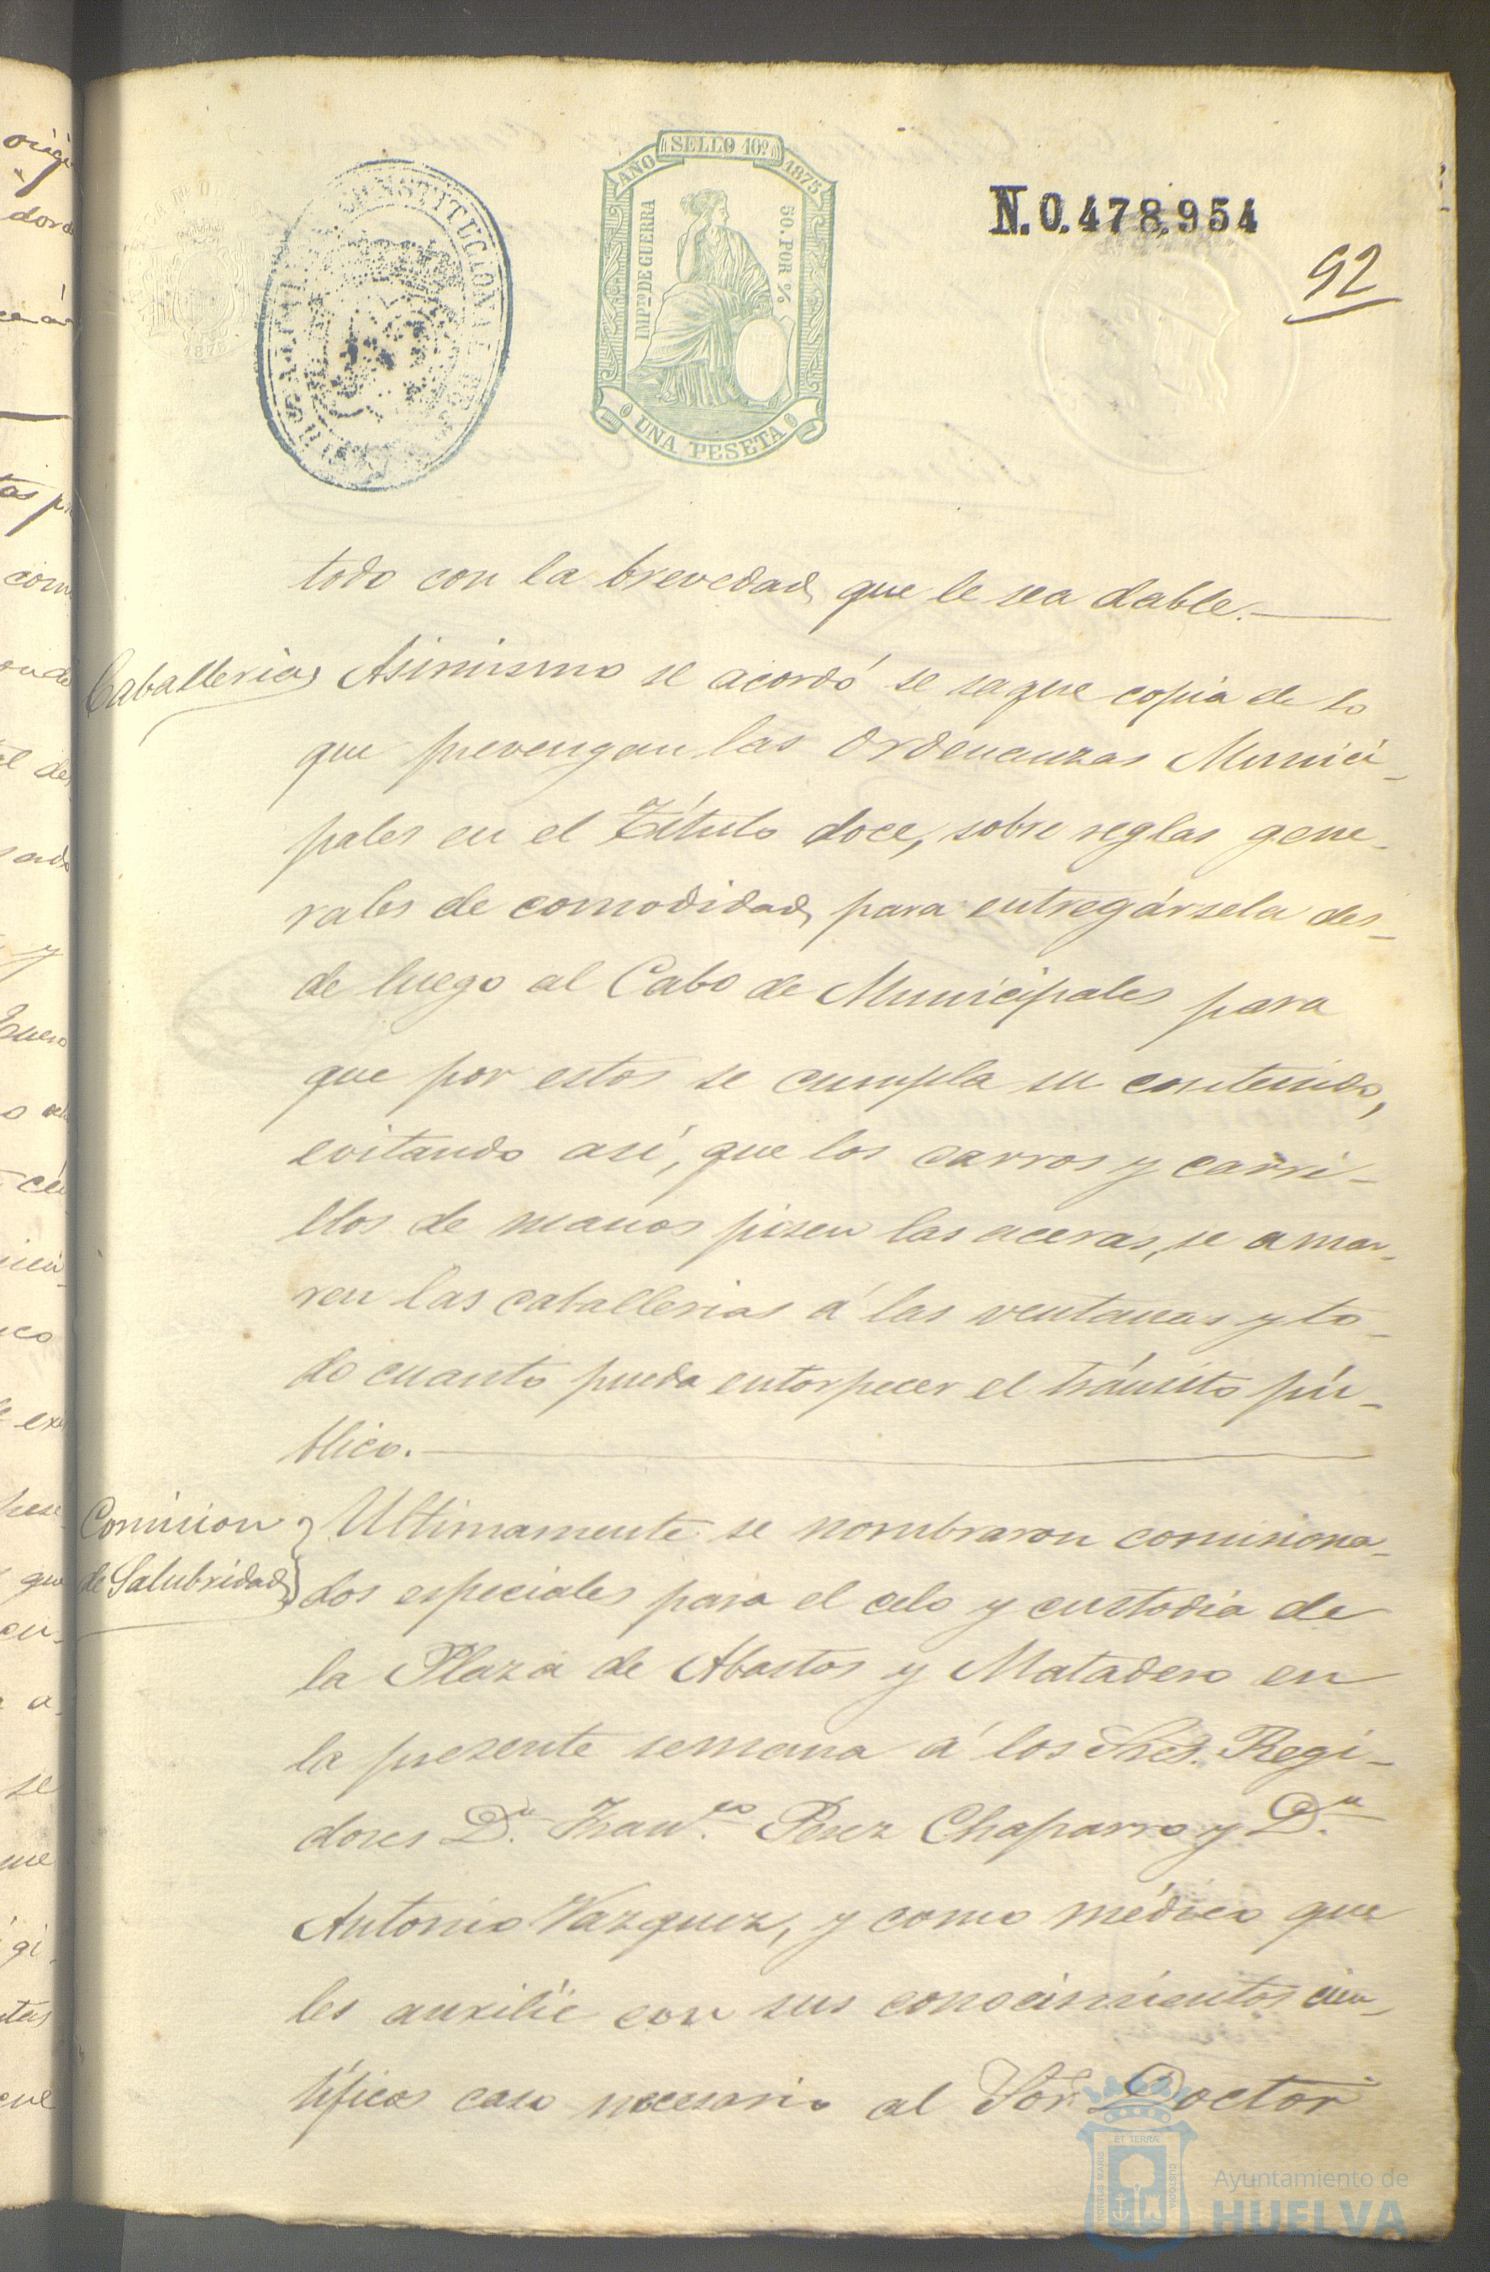 SELLO 10º
AÑO 1875
IMPTO DE GUERRA
50. POR %
UNA PESETA
N.0.478,954
92
todo con la brevedad que le sea dable.
Caballerias
Asimismo se acordó se saque copia de lo
que prevengan las Ordenanzas Munici-
pales en el Título doce, sobre reglas gene-
rales de comodidad para entregársela des-
de luego al Cabo de Municipales para
que por estos se cumpla su contenido,
evitando así, que los carros y carri-
llos de manos pisen las aceras, se amar-
ren las caballerias á las ventanas y to-
do cuanto pueda entorpecer el tránsito pú-
blico.
Comision
de Salubridad
Ultimamente se nombraron comisiona-
dos especiales para el celo y custodia de
la Plaza de Abastos y Matadero en
la presente semana á los Sres. Regi-
dores Dn. Franco. Perez Chaparro y Dn.
Antonio Vazquez, y como médico que
les auxilie con sus conocimientos cien-
tíficos caso necesario al Sor. Doctor
Ayuntamiento de
HUELVA